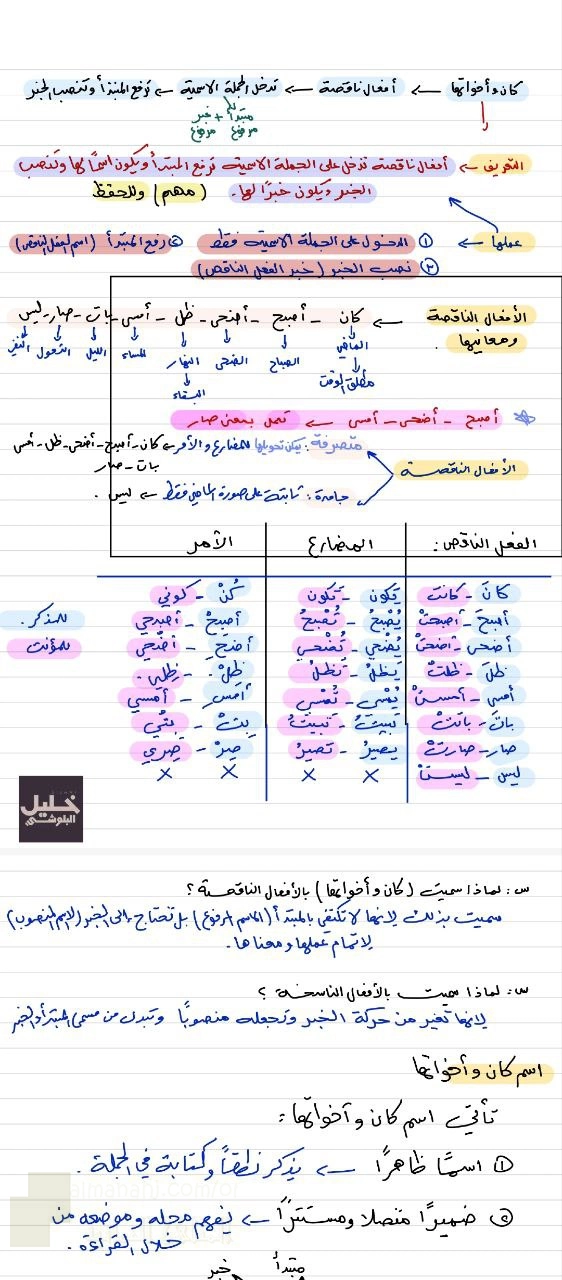 كان وأخواتها ← أفعال ناقصة ← تدخل الجملة الاسمية ← ترفع المبتدأ وتنصب الخبر
مبتدأ + خبر
مرفوع مرفوع
التعريف ← أفعال ناقصة تدخل على الجملة الاسمية ترفع المبتدأ ويكون اسمًا لها وتنصب
الخبر ويكون خبرًا لها. (مهم) وللحفظ
عملها ← ① الدخول على الجملة الاسمية فقط ② رفع المبتدأ (اسم الفعل الناقص)
③ نصب الخبر (خبر الفعل الناقص)
الأفعال الناقصة ← كان - أصبح - أضحى - ظل - أمسى - بات - صار - ليس
ومعانيها .
الماضي الصباح الضحى النهار المساء الليل التحول النفي
مطلق الوقت البقاء
أصبح - أضحى - أمسى ← تعمل بمعنى صار
متصرفة: يمكن تحويلها للمضارع والأمر ← كان - أصبح - أضحى - ظل - أمسى
بات - صار
الأفعال الناقصة
جامدة: ثابتة على صورة الماضي فقط ← ليس .
الفعل الناقص: المضارع الأمر
كان - كانت يَكون - تَكون كُنْ - كوني
أصبحَ - أصبحتْ يُصْبحُ - تُصْبحُ أصبحْ - أصبحي
أضحى - أضحتْ يُضْحي - تُضْحي أضحِ - أضْحي
ظلَّ - ظلتْ يَظلُّ - تَظلُّ ظلْ - ظلي
أمسى - أمستْ يُمْسي - تُمْسي أمْسِ - أمْسي
باتَ - باتتْ يَبيتُ - تَبيتُ بِتْ - بِتي
صارَ - صارتْ يَصيرُ - تَصيرُ صِرْ - صِري
ليس - ليستْ × × × ×
للمذكر .
للمؤنث
خليل
البلوشي
س: لماذا سميت (كان وأخواتها) بالأفعال الناقصة ؟
سميت بذلك لانها لا تكتفي بالمبتدأ (الاسم المرفوع) بل تحتاج إلى الخبر (الاسم المنصوب)
لاتمام عملها ومعناها.
س: لماذا سميت بالأفعال الناسخة ؟
لانها تغير من حركة الخبر وتجعله منصوبًا وتبدل من مسمى المبتدأ والخبر
اسم كان وأخواتها
تأتي اسم كان وأخواتها :
① اسمًا ظاهرًا ← يذكر نطقاً وكتابة في الجملة .
② ضميرًا متصلا ومستترًا ← يفهم محله وموضعه من
خلال القراءة .
almanahj.com/om
مبتدأ خبر